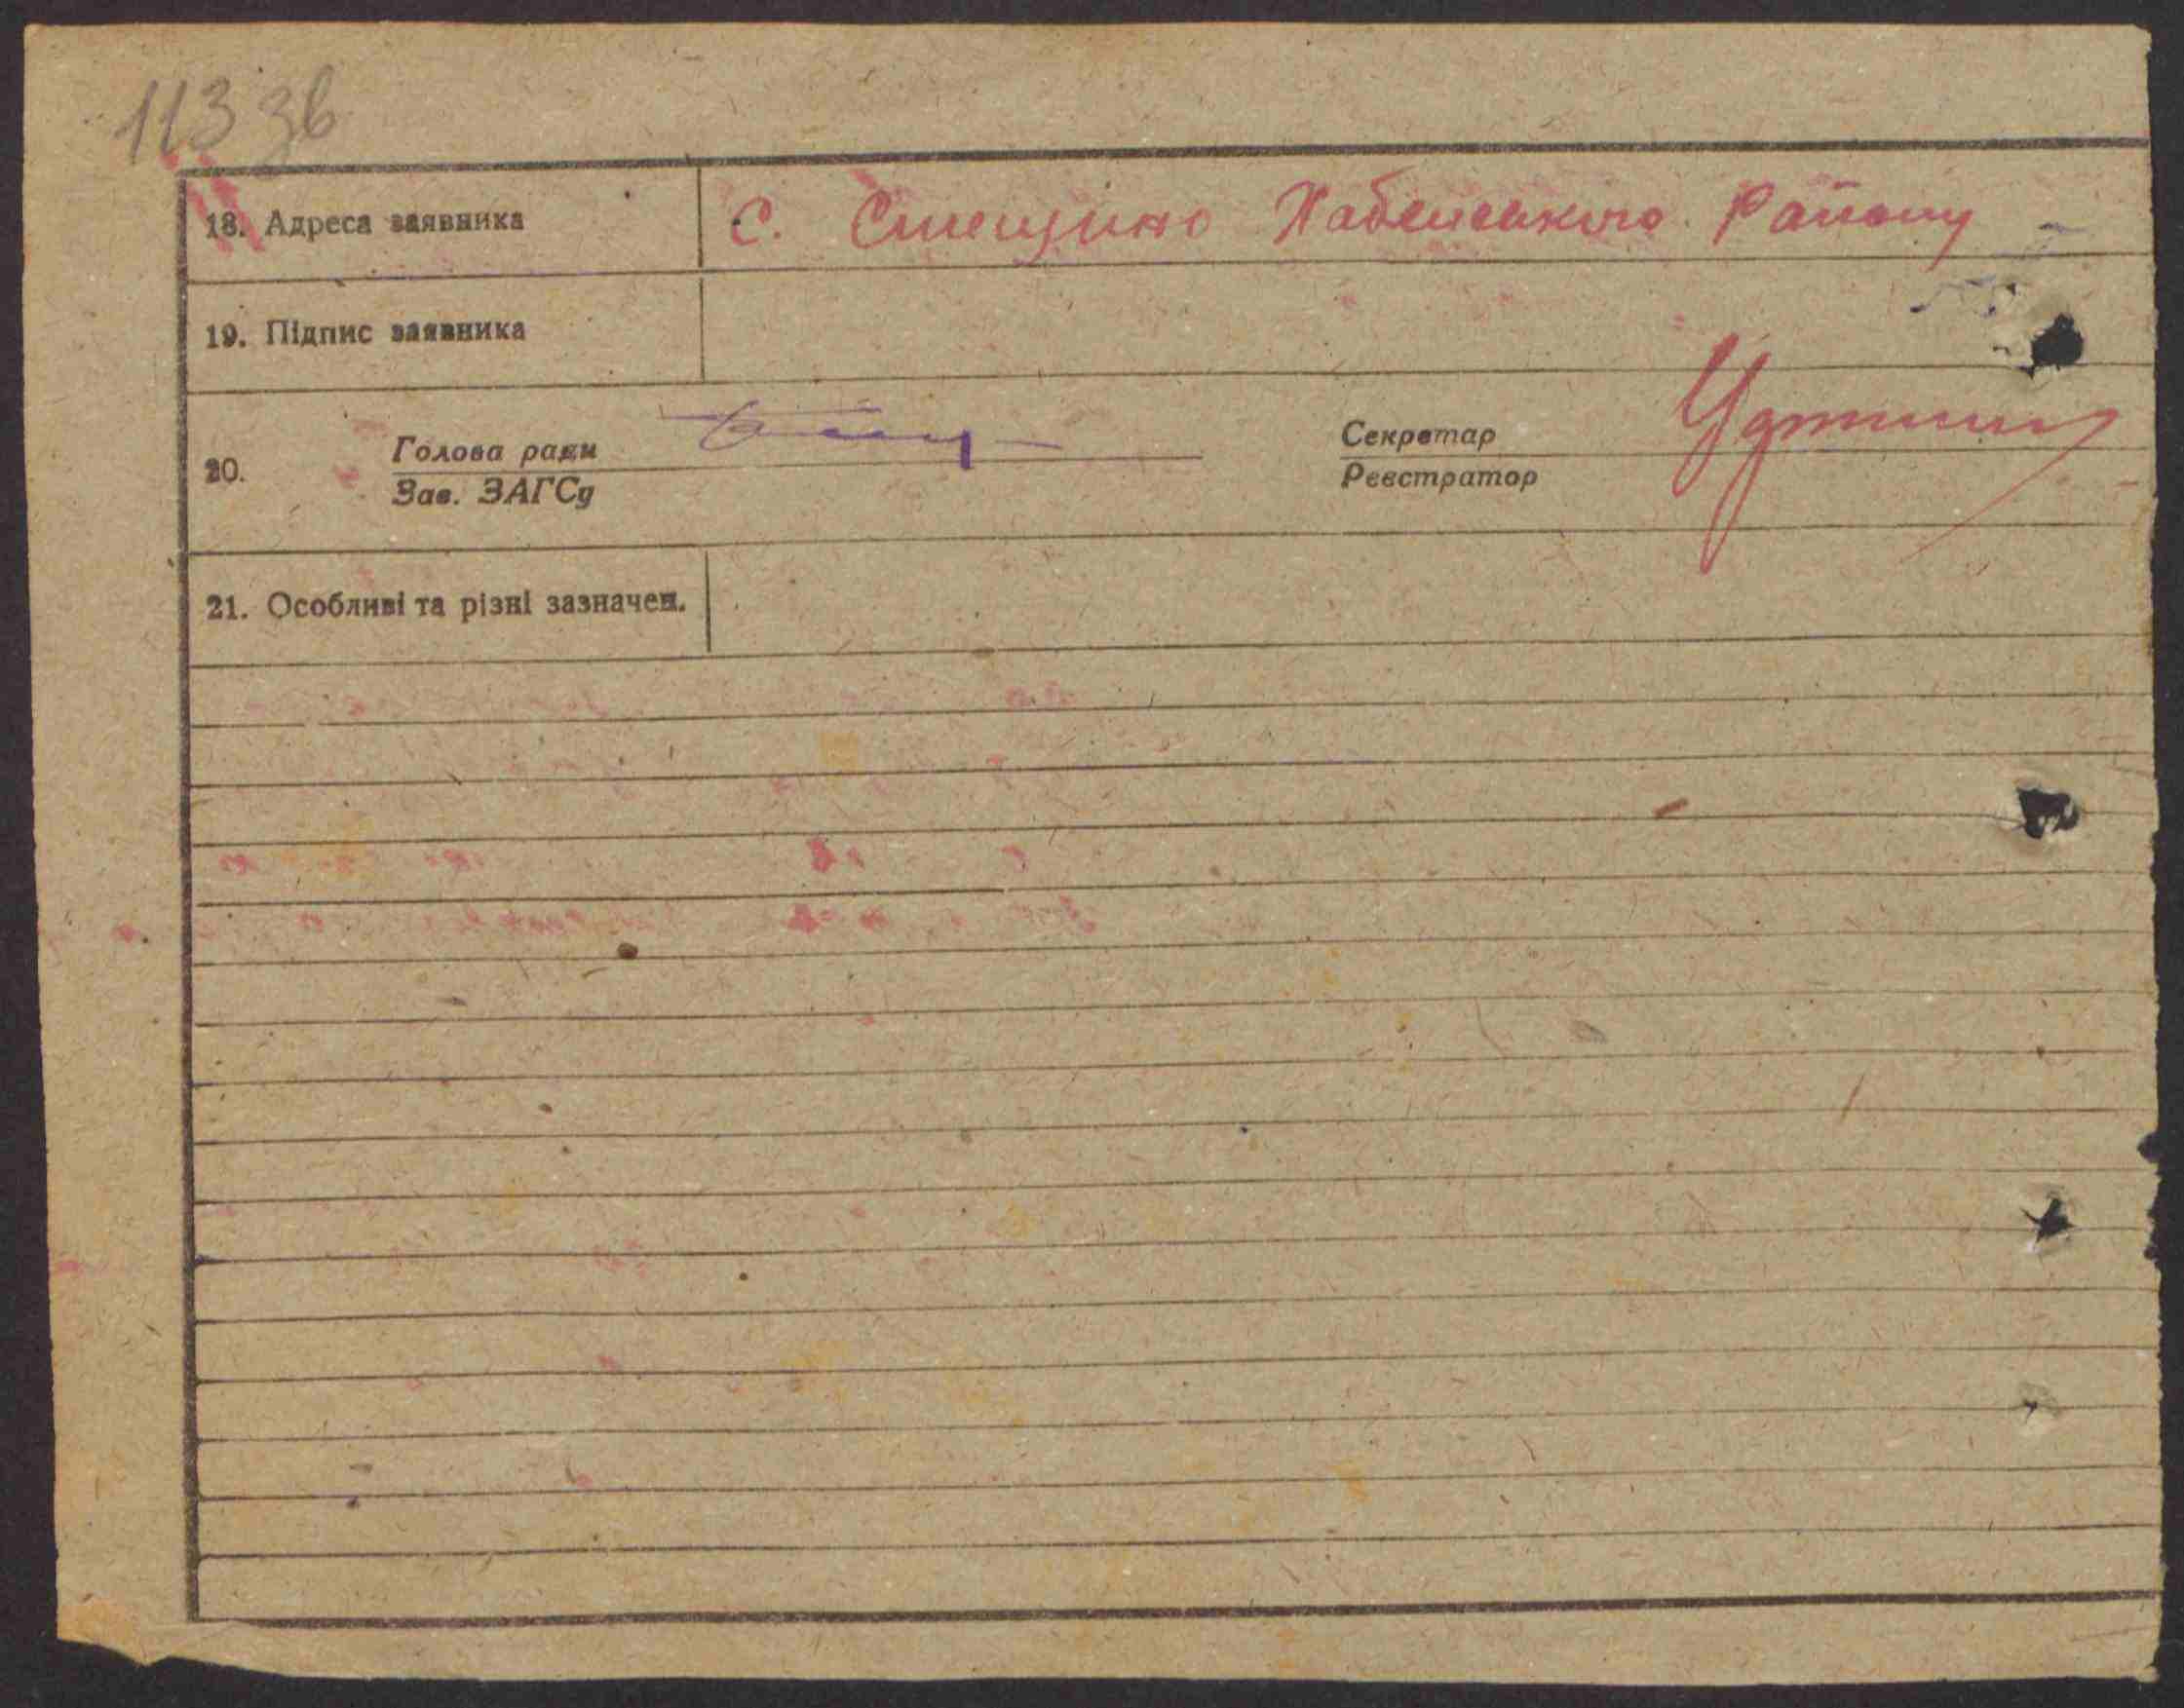 113 зв
18. Адреса заявника с. Стещино Хабенського району
19. Підпис заявника
20. Голова ради Секретар
Зав. ЗАГСу Реєстратор
21. Особливі та різні зазначен.